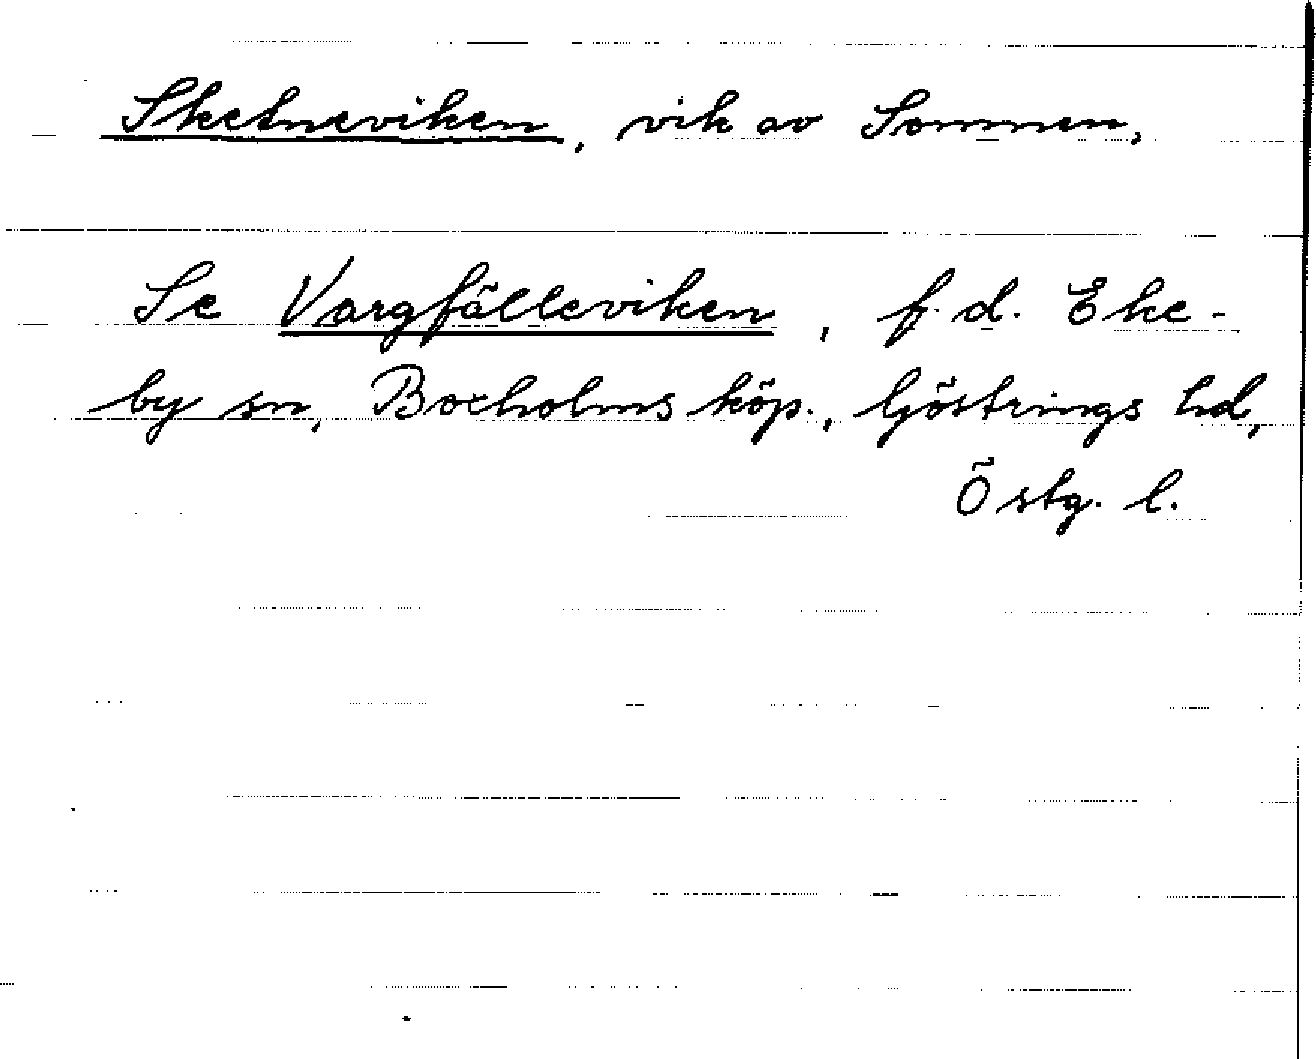 Sketneviken, vik av Sommen,
Se Vargfälleviken, f.d. Eke-
by sn, Boxholms köp., Göstrings hd,
Östg. l.